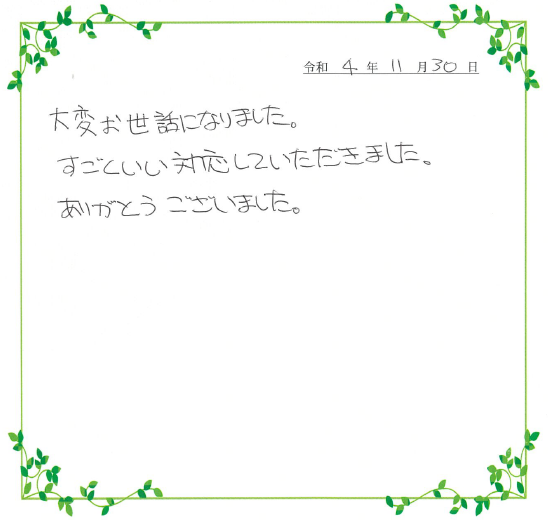 令和 4 年 11 月 30 日
大変お世話になりました。
すごくいい対応していただきました。
ありがとうございました。